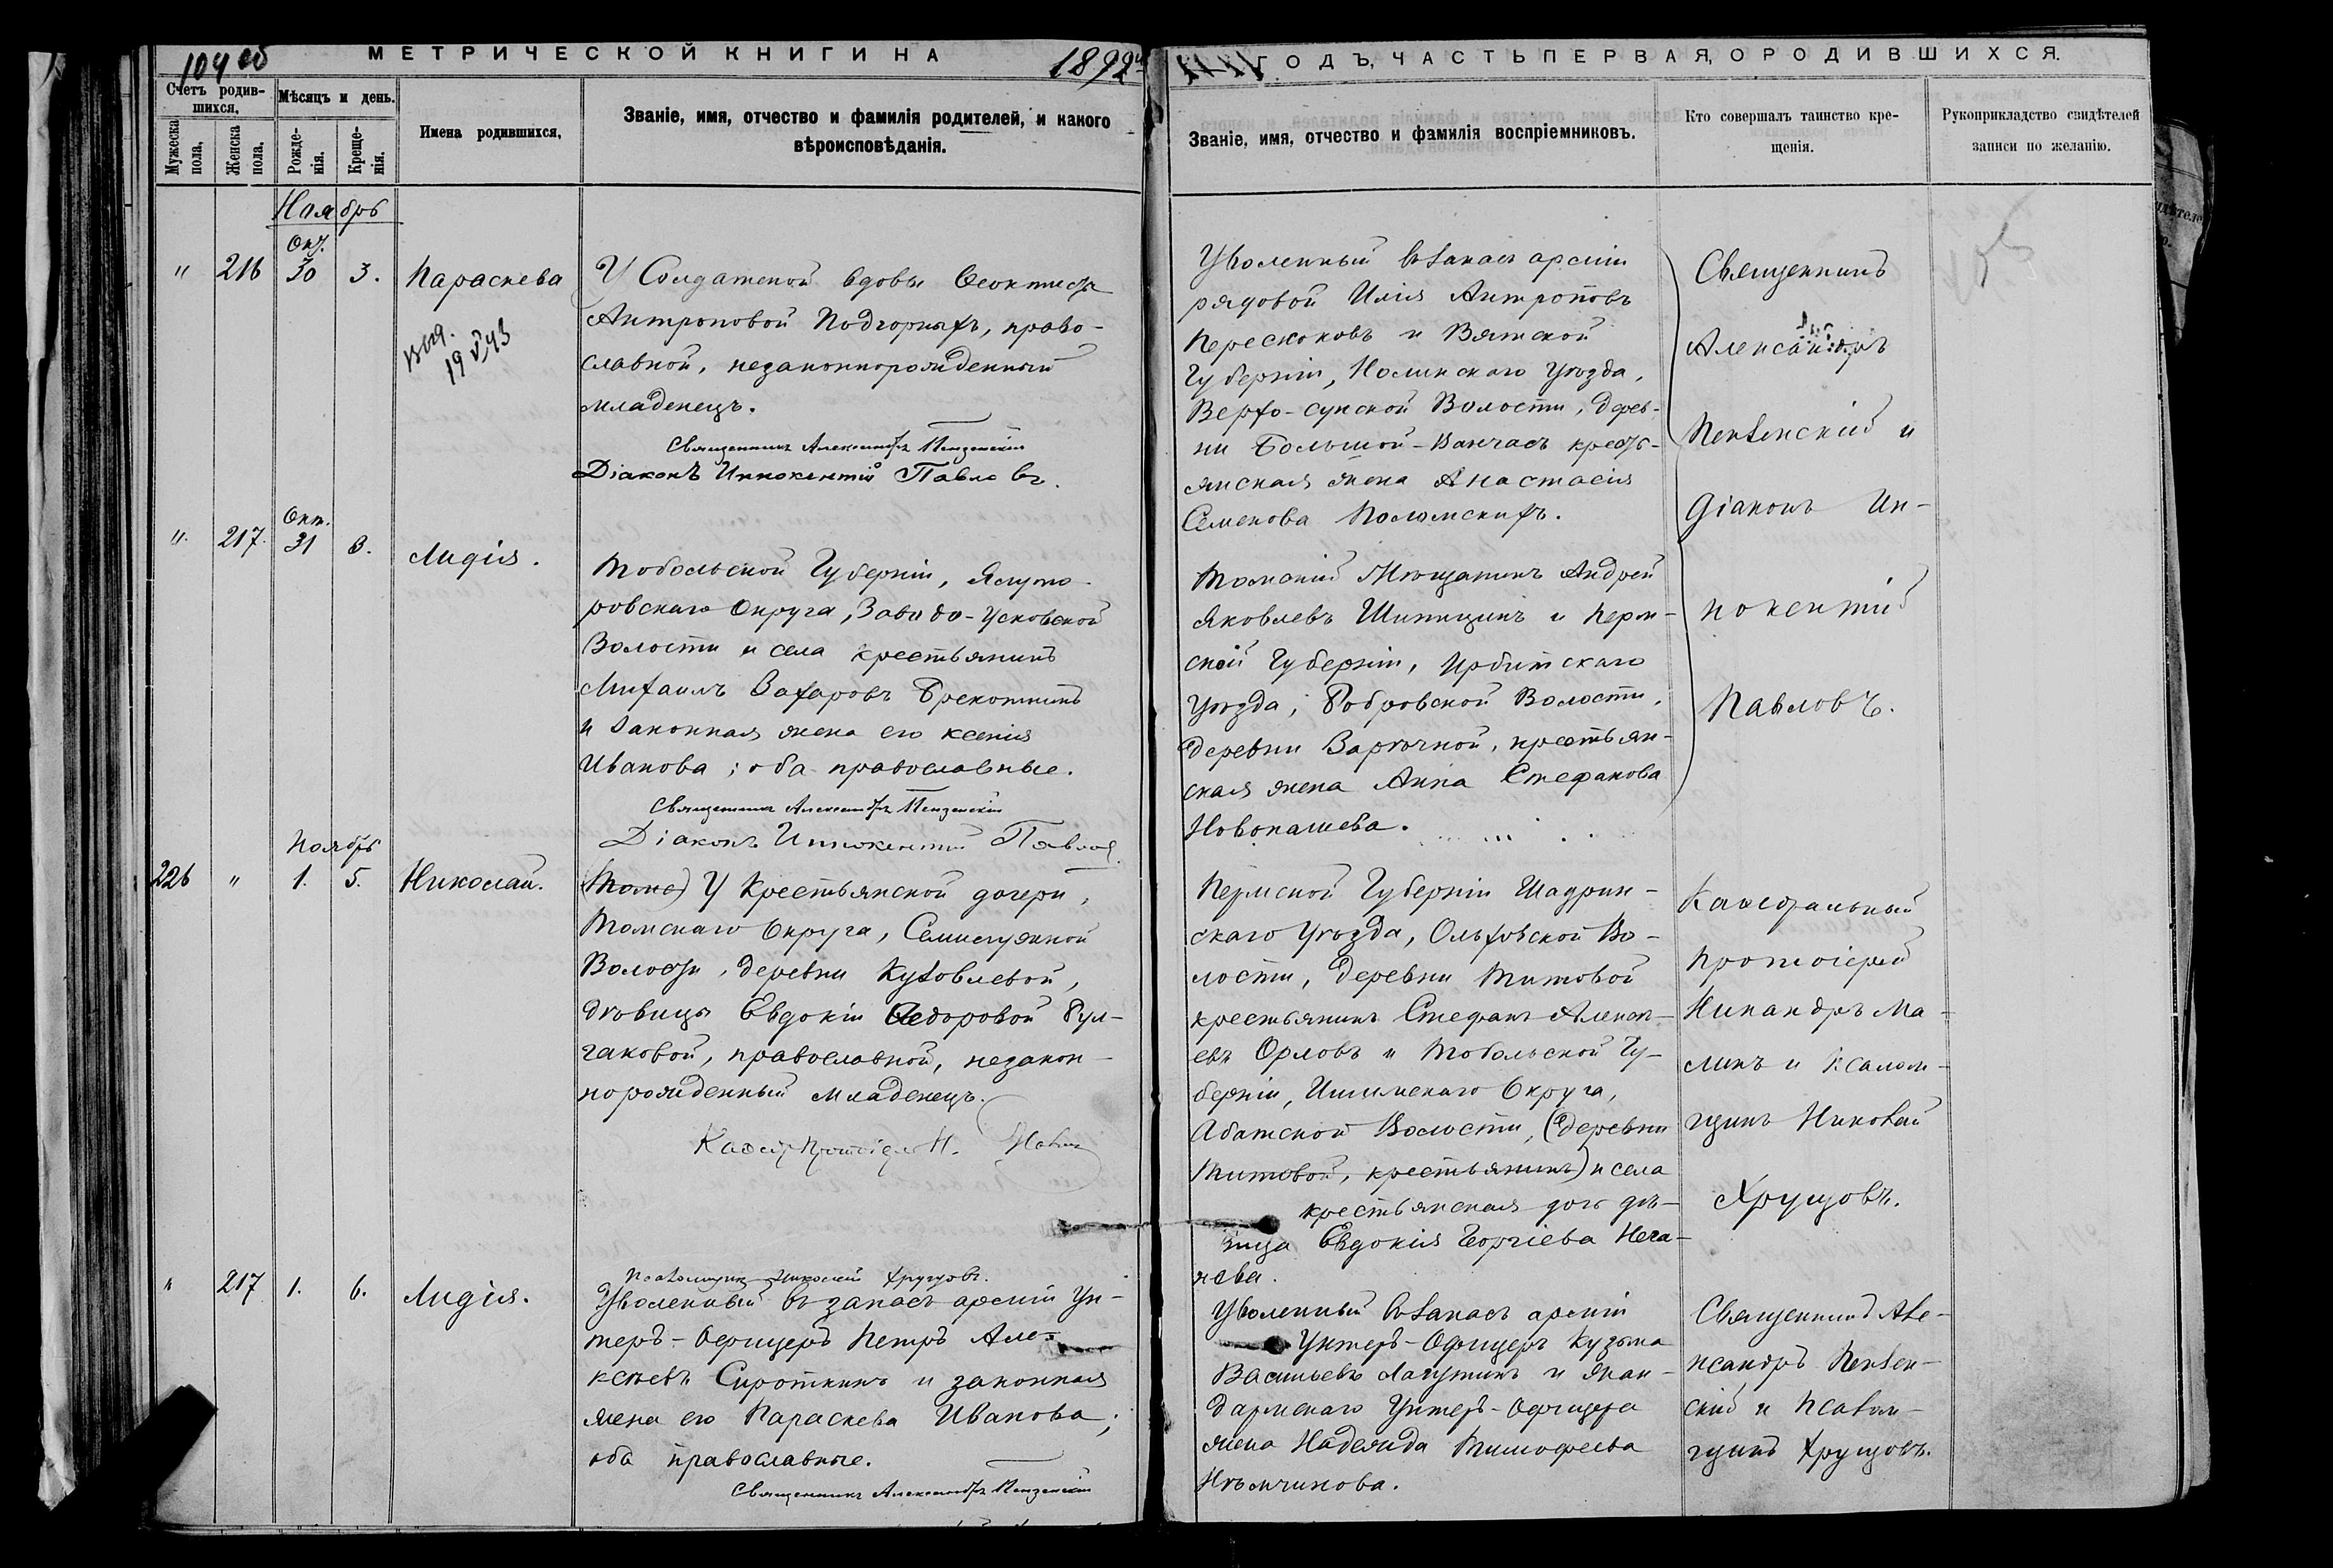 104 об
МЕТРИЧЕСКОЙ КНИГИ НА 1892й
ГОДЪ, ЧАСТЬ ПЕРВАЯ, О РОДИВШИХСЯ.
Счетъ родив-
шихся,
Мужеска
пола,
Женска
пола,
Мѣсяцъ и день.
Рожде-
нія.
Креще-
нія.
Имена родившихся,
Званіе, имя, отчество и фамилія родителей, и какого
вѣроисповѣданія.
Званіе, имя, отчество и фамилія воспріемниковъ.
Кто совершалъ таинство кре-
щенія.
Рукоприкладство свидѣтелей
записи по желанію.
Ноябрь
Окт.
" 216 30 3. Параскева
выд.
19 V 43
У Солдатской вдовы Ѳеоктисты
Антроповой Подгорныхъ, право-
славной, незаконнорожденный
младенецъ.
Священникъ Александръ Пензенскій
Діаконъ Иннокентій Павловъ.
Уволенный въ запасъ арміи
рядовой Илія Антроповъ
Перескоковъ и Вятской
Губерніи, Нолинскаго Уѣзда,
Верхо-сунской Волости, дерев-
ни Большой-Ванчасъ кресть-
янская жена Анастасія
Семенова Поломскихъ.
Священникъ
Александръ
Пензенскій и
діаконъ Ин-
нокентій
Павловъ.
Окт.
" 217. 31 3. Лидія.
Тобольской Губерніи, Ялуто-
ровскаго Округа, Заводо-Усковской
Волости и села крестьянинъ
Михаилъ Захаровъ Брекоткинъ
и законная жена его Ксенія
Иванова; оба православные.
Священникъ Александръ Пензенскій
Діаконъ Иннокентій Павловъ.
Томскій Мѣщанинъ Андрей
Яковлевъ Шипицинъ и Перм-
ской Губерніи, Ирбитскаго
Уѣзда, Бобровской Волости,
деревни Зарѣчной, крестьян-
ская жена Анна Стефанова
Новопашева.
Ноябрь
226 " 1. 5. Николай.
(Томс) У Крестьянской дочери,
Томскаго Округа, Семилужной
Волости, деревни Кузовлевой,
дѣвицы Евдокіи Ѳедоровой Бул-
гаковой, православной, незакон-
норожденный младенецъ.
Каѳедр. Протоіерей Н.
Псаломщик Николай Хрущовъ.
Пермской Губерніи Шадрин-
скаго Уѣзда, Ольховской Во-
лости, деревни Титовой
крестьянинъ Стефанъ Алексѣ-
евъ Орловъ и Тобольской Гу-
берніи, Ишимскаго Округа,
Абатской Волости, (деревни
Титовой, крестьянинъ) и села
крестьянская дочь дѣ-
вица Евдокія Георгіева Неча-
яева.
Каѳедральный
Протоіерей
Никандръ Ма-
линъ и Псалом-
щикъ Николай
Хрущовъ.
" 217 1. 6. Лидія.
Уволенный въ запасъ арміи Ун-
теръ-Офицеръ Петръ Але-
ксѣевъ Сироткинъ и законная
жена его Параскева Иванова;
оба православные.
Священникъ Александръ Пензенскій
Уволенный въ запасъ арміи
Унтеръ-Офицеръ Кузьма
Васильевъ Лапутинъ и жан-
дармскаго Унтеръ-Офицера
жена Надежда Тимофеева
Нѣмчинова.
Священникъ Але-
ксандръ Пензен-
скій и Псалом-
щикъ Хрущовъ.